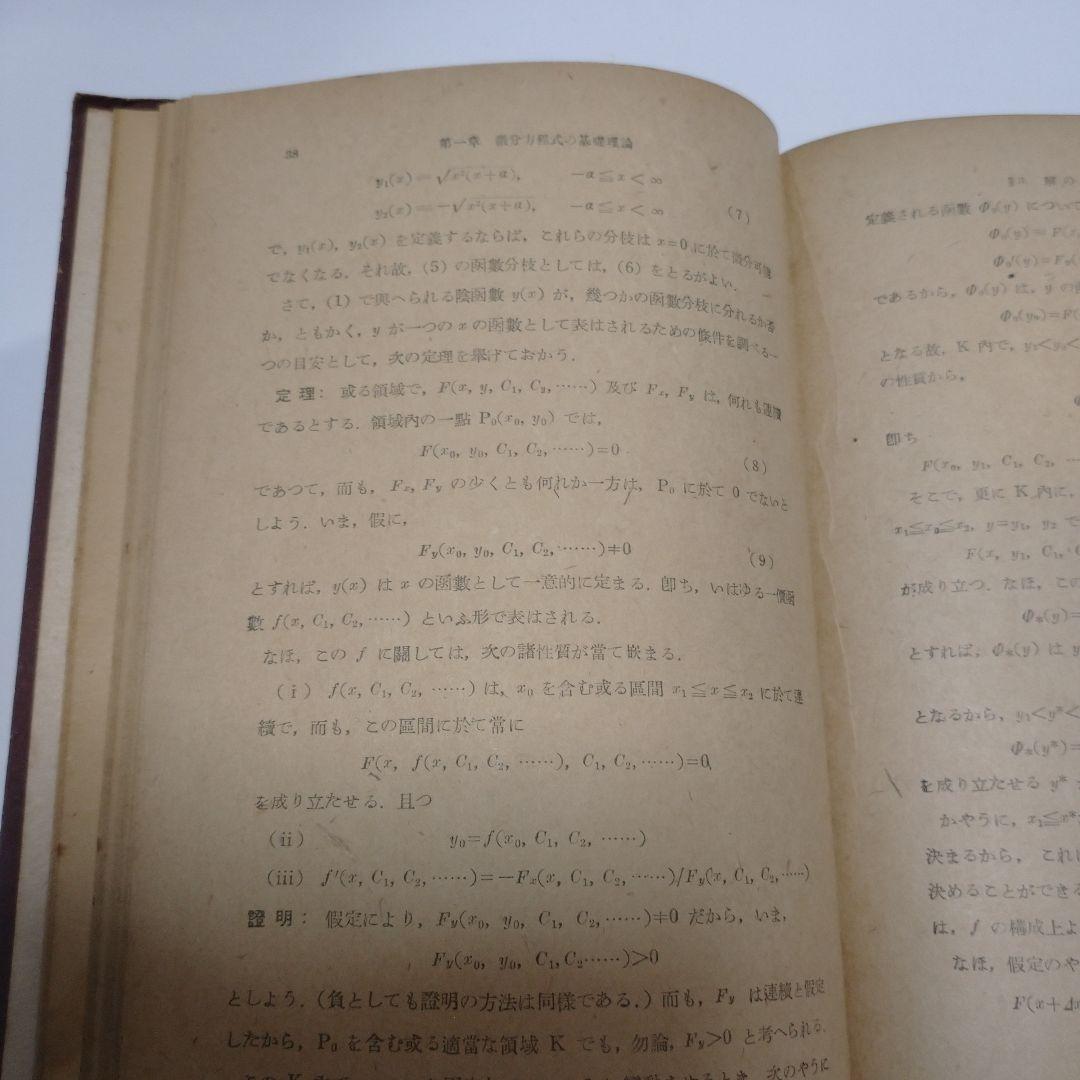 38
第一章 微分方程式の基礎理論
y₁(x)=√x²(x+a), −a≦x<∞
y₂(x)=−√x²(x+a), −a≦x<∞ (7)
で，y₁(x), y₂(x) を定義するならば，これらの分枝は x=0 に於て微分可能
でなくなる．それ故，(5) の函數分枝としては，(6) をとるがよい．
さて，(1) で與へられる陰函數 y(x) が，幾つかの函數分枝に分れるか否
か，ともかく，y が一つの x の函數として表はされるための條件を調べる一
つの目安として，次の定理を擧げておかう．
定理： 或る領域で，F(x, y, C₁, C₂, ……) 及び Fₓ, F_y は，何れも連續
であるとする．領域內の一點 P₀(x₀, y₀) では，
F(x₀, y₀, C₁, C₂, ……)=0 (8)
であつて，而も，Fₓ, F_y の少くとも何れか一方は，P₀ に於て 0 でないと
しよう．いま，假に，
F_y(x₀, y₀, C₁, C₂, ……)≠0 (9)
とすれば，y(x) は x の函數として一意的に定まる．卽ち，いはゆる一價函
數 f(x, C₁, C₂, ……) といふ形で表はされる．
なほ，この f に關しては，次の諸性質が當て嵌まる．
(i) f(x, C₁, C₂, ……) は，x₀ を含む或る區間 x₁≦x≦x₂ に於て連
續で，而も，この區間に於て常に
F(x, f(x, C₁, C₂, ……), C₁, C₂, ……)=0,
を成り立たせる．且つ
(ii) y₀=f(x₀, C₁, C₂, ……)
(iii) f′(x, C₁, C₂, ……)=−Fₓ(x, C₁, C₂, ……)/F_y(x, C₁, C₂, ……)
證明： 假定により，F_y(x₀, y₀, C₁, C₂, ……)≠0 だから，いま，
F_y(x₀, y₀, C₁, C₂……)>0
としよう．(負としても證明の方法は同樣である．) 而も，F_y は連續と假定
したから，P₀ を含む或る適當な領域 K でも，勿論，F_y>0 と考へられる．
次のやうに
解の
定義される函數 Φ₀(y) について
Φ₀(y)=F(x
Φ₀′(y)=F_y(
であるから，Φ₀(y) は，y の
Φ₀(y₀)=F(
となる故，K 內で，y₁<y₀<
の性質から，
卽ち
F(x₀, y₁, C₁, C₂,
そこで，更に K 內に，
x₁≦x₀≦x₂, y=y₁, y₂ で
F(x, y₁, C₁,
が成り立つ．なほ，この
Φ*(y)=
とすれば，Φ*(y) は y
となるから，y₁<y*<
Φ*(y*)=
を成り立たせる y*
かやうに，x₁≦x*
決まるから，これは
決めることができる
は，f の構成上よ
なほ，假定のや
F(x+Δx